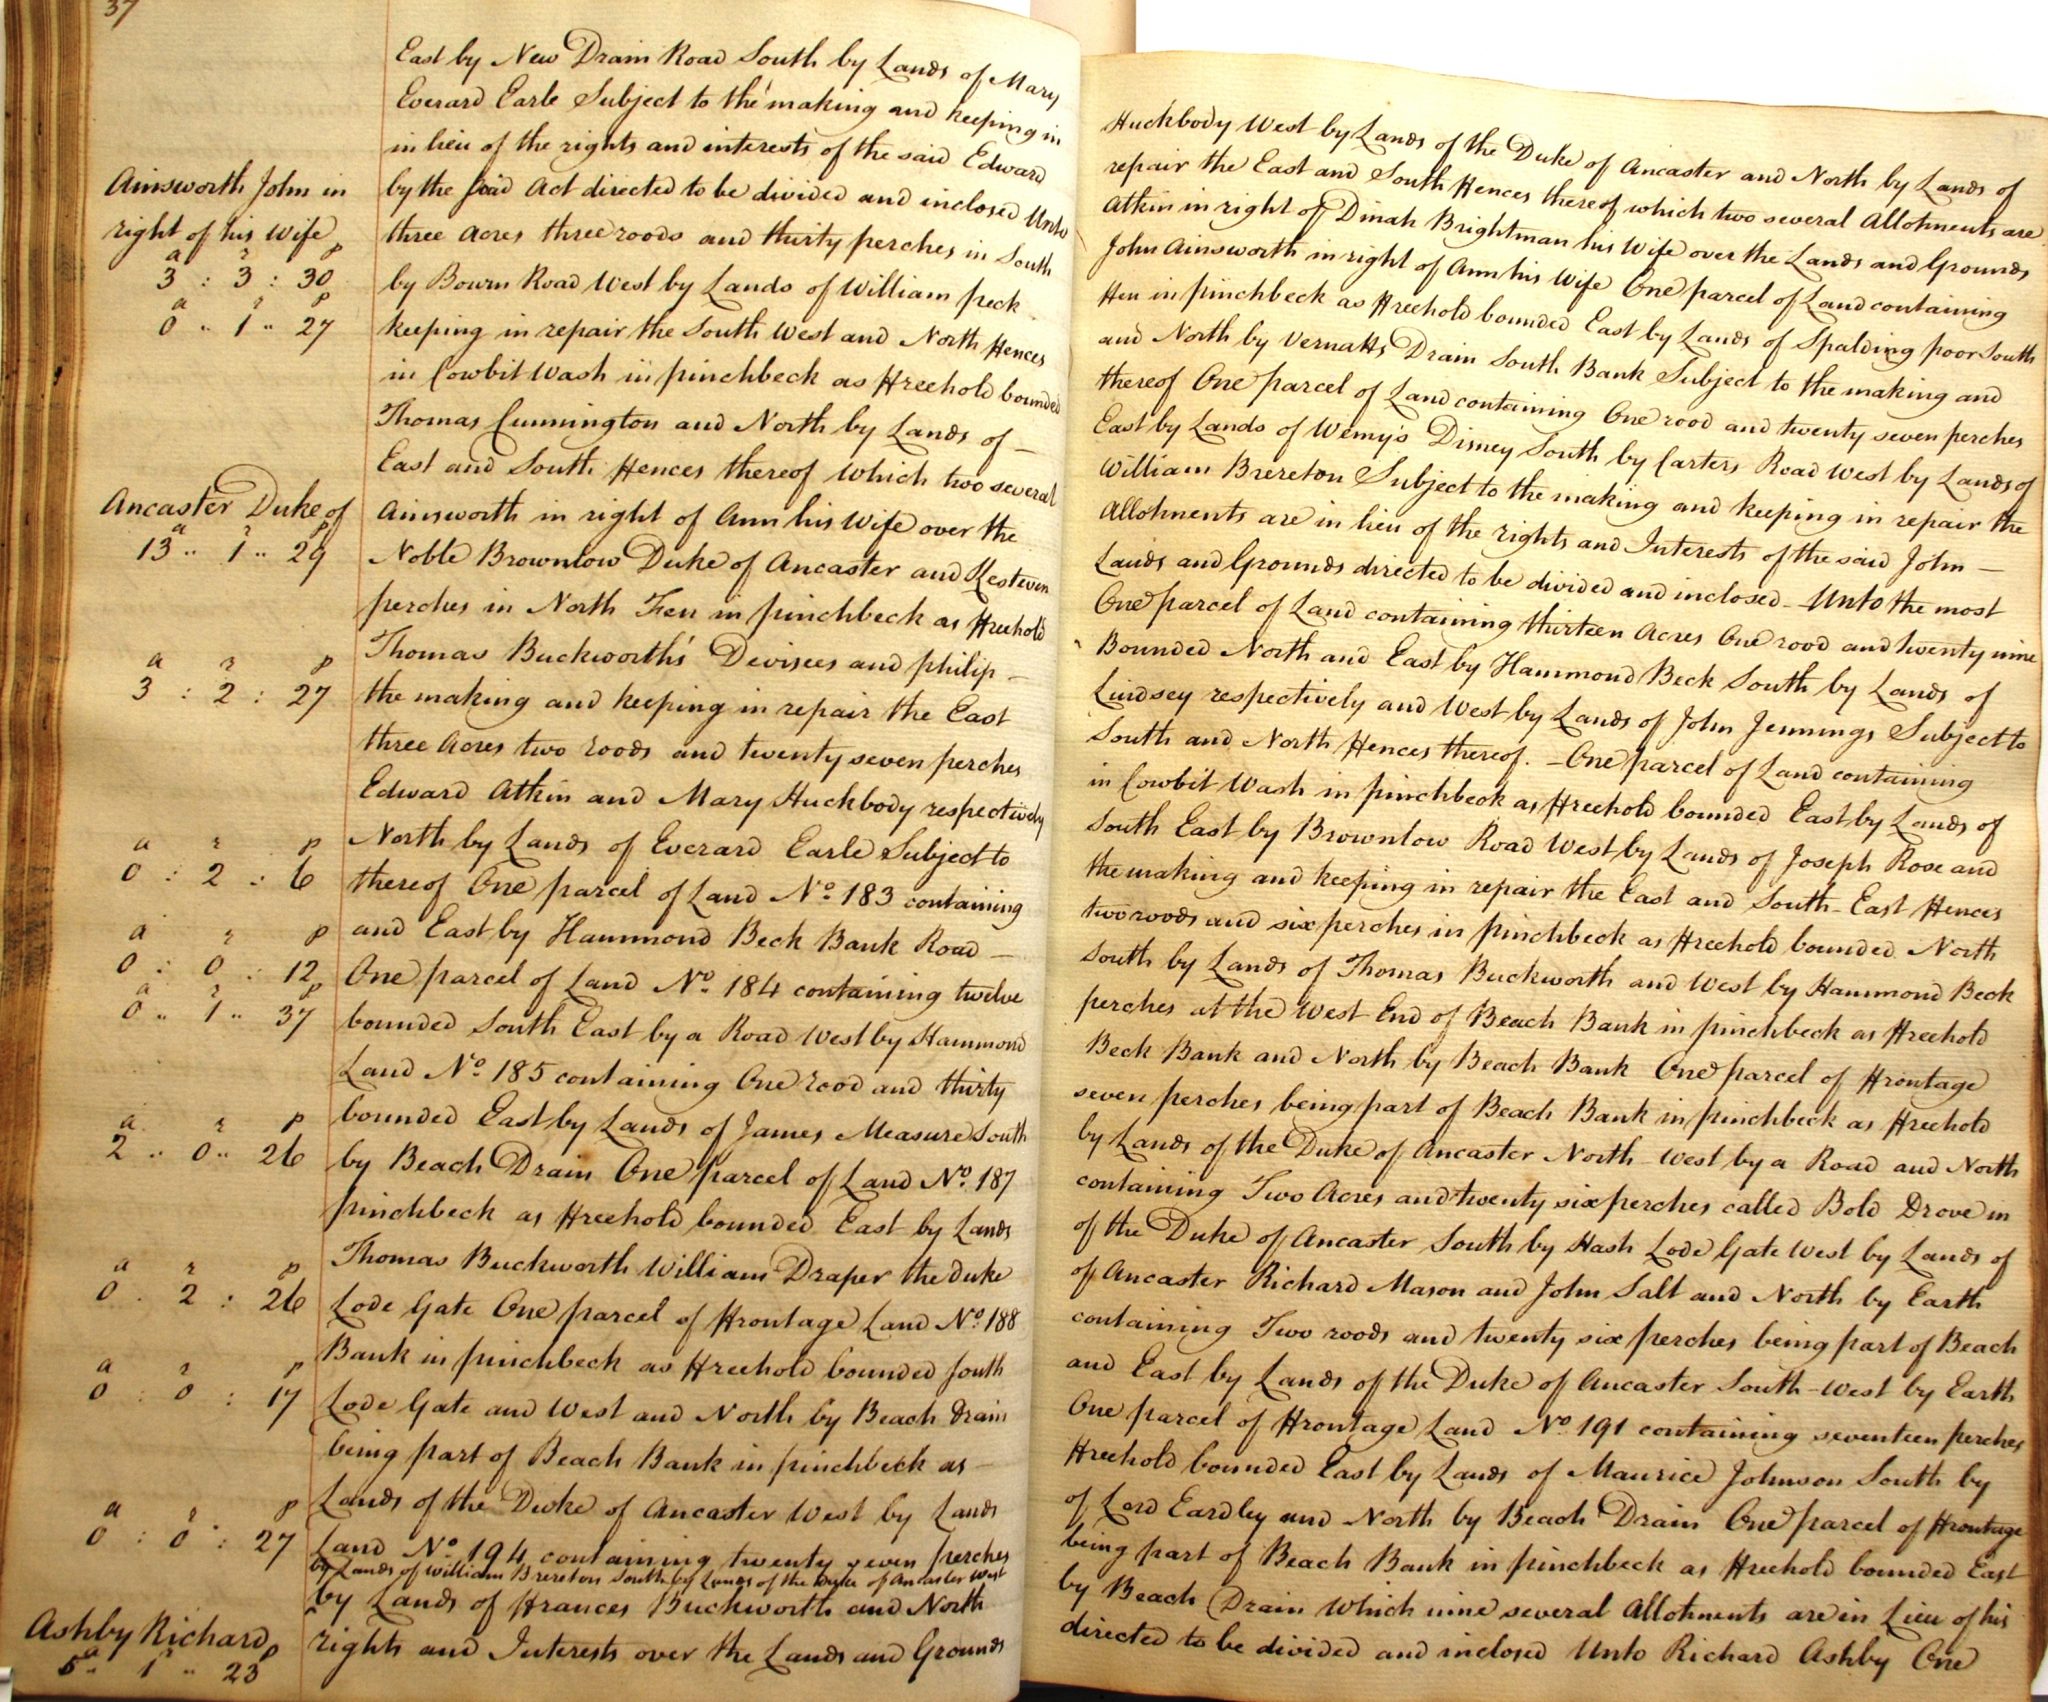 37
East by New Drain Road South by Lands of Mary Huckbody West by Lands of the Duke of Ancaster and North by Lands of
Everard Earle Subject to the making and keeping in repair the East and South ffences thereof which two several Allotments are
in lieu of the rights and interests of the said Edward Atkin in right of Dinah Brightman his Wife over the Lands and Grounds
Ainsworth John in
right of his Wife
by the said Act directed to be divided and inclosed Unto John Ainsworth in right of Ann his Wife One parcel of Land containing
a r p
3 : 3 : 30
three Acres three roods and thirty perches in South ffen in pinchbeck as ffreehold bounded East by Lands of Spalding poor South
by Bourn Road West by Lands of William peck and North by Vernatts Drain South Bank Subject to the making and
a r p
0 " 1 " 27
keeping in repair the South West and North ffences thereof One parcel of Land containing One rood and twenty seven perches
in Cowbit Wash in pinchbeck as ffreehold bounded East by Lands of Wemy's Disney South by Carters Road West by Lands of
Thomas Cunnington and North by Lands of — William Brereton Subject to the making and keeping in repair the
East and South ffences thereof which two several Allotments are in lieu of the rights and Interests of the said John —
Ancaster Duke of
Ainsworth in right of Ann his Wife over the Lands and Grounds directed to be divided and inclosed – Unto the most
a r p
13 " 1 " 29
Noble Brownlow Duke of Ancaster and Kesteven One parcel of Land containing thirteen Acres One rood and twenty nine
perches in North Fen in pinchbeck as ffreehold Bounded North and East by Hammond Beck South by Lands of
Thomas Buckworth's Devisees and philip – Lindsey respectively and West by Lands of John Jennings Subject to
a r p
3 : 2 : 27
the making and keeping in repair the East South and North ffences thereof. – One parcel of Land containing
three Acres two roods and twenty seven perches in Cowbit Wash in pinchbeck as ffreehold bounded East by Lands of
Edward Atkin and Mary Huckbody respectively South East by Brownlow Road West by Lands of Joseph Rose and
North by Lands of Everard Earle Subject to the making and keeping in repair the East and South-East ffences
a r p
0 : 2 : 6
thereof One parcel of Land No. 183 containing two roods and six perches in pinchbeck as ffreehold bounded North
and East by Hammond Beck Bank Road – South by Lands of Thomas Buckworth and West by Hammond Beck
a r p
0 : 0 : 12
One parcel of Land No. 184 containing twelve perches at the West End of Beach Bank in pinchbeck as ffreehold
bounded South East by a Road West by Hammond Beck Bank and North by Beach Bank One parcel of ffrontage
a r p
0 " 1 " 37
Land No. 185 containing One rood and thirty seven perches being part of Beach Bank in pinchbeck as ffreehold
bounded East by Lands of James Measure South by Lands of the Duke of Ancaster North-West by a Road and North
a r p
2 " 0 " 26
by Beach Drain One parcel of Land No. 187 containing Two Acres and twenty six perches called Bold Drove in
pinchbeck as ffreehold bounded East by Lands of the Duke of Ancaster South by Hash Lode Gate West by Lands of
Thomas Buckworth William Draper the Duke of Ancaster Richard Mason and John Salt and North by Earth
a r p
0 . 2 : 26
Lode Gate One parcel of ffrontage Land No. 188 containing Two roods and twenty six perches being part of Beach
Bank in pinchbeck as ffreehold bounded South and East by Lands of the Duke of Ancaster South-West by Earth
a r p
0 : 0 : 17
Lode Gate and West and North by Beach Drain One parcel of ffrontage Land No. 191 containing seventeen perches
being part of Beach Bank in pinchbeck as – ffreehold bounded East by Lands of Maurice Johnson South by
Lands of the Duke of Ancaster West by Lands of Lord Eardley and North by Beach Drain One parcel of ffrontage
a r p
0 : 0 : 27
Land No. 194 containing twenty seven perches being part of Beach Bank in pinchbeck as ffreehold bounded East
by Lands of William Brereton South by Lands of the Duke of Ancaster West
by Lands of ffrances Buckworth and North by Beach Drain Which nine several Allotments are in Lieu of his
Ashby Richard
a r p
5 " 1 " 23
rights and Interests over the Lands and Grounds directed to be divided and inclosed Unto Richard Ashby One